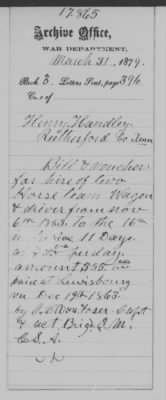 17865
Archive Office,
WAR DEPARTMENT,
March 31, 1879.
Book 3. Letters Sent, page 396
Case of
Henry Handley
Rutherford Co Tenn
Bill & voucher
for hire of two
Horse team Wagon
& driver from Nov
6th 1863 to the 16th
11 Days.
at $5.00 per day.
amount $55.00
paid at Lewisbourg
on Dec 19th 1863
by Capt
& act Brig. Q. M.
C.S.A.